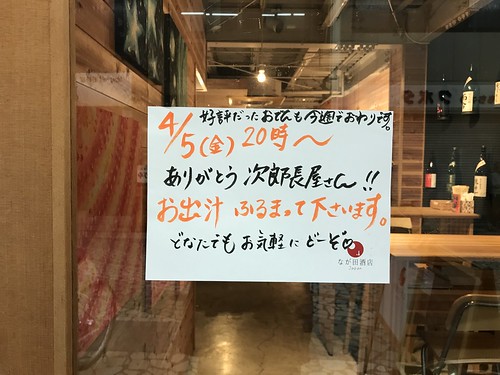 好評だったおでんも今週でおわりです。
4/5(金)20時〜
ありがとう 次郎長屋さん!!
お出汁 ふるまって下さいます。
どなたでも お気軽に どーぞ
なが田酒店